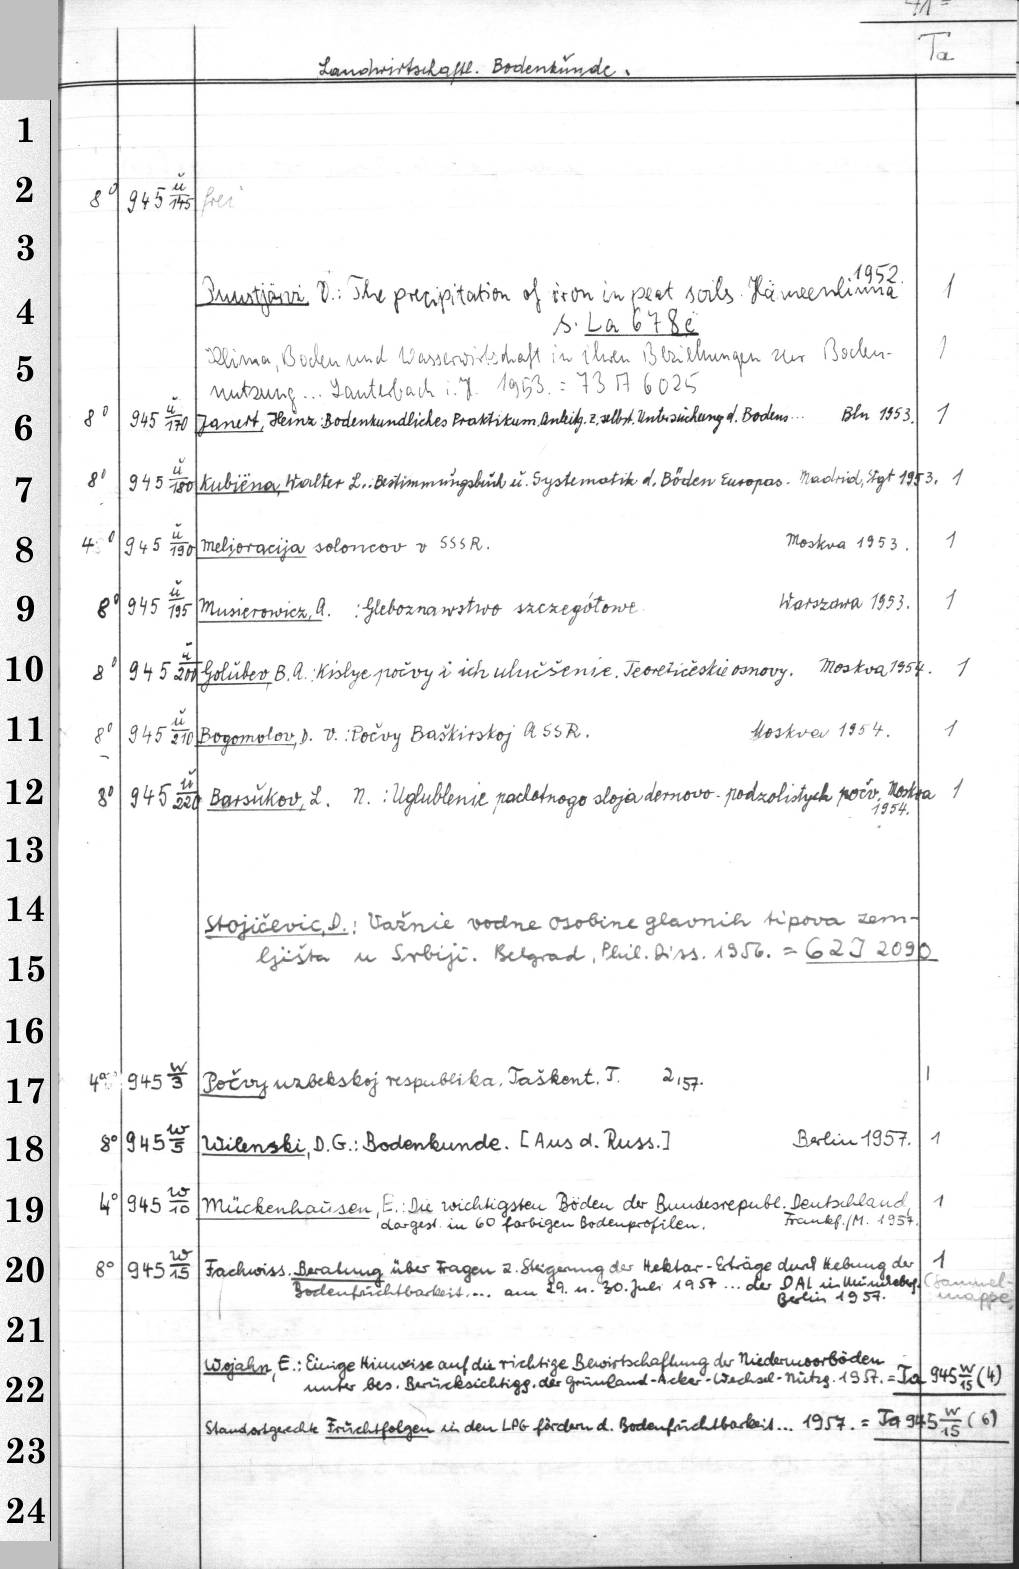 41
Ta
Landwirtschaftl. Bodenkŭnde.
1
2 8° 945 ŭ/145 frei
3
4 Puustjärvi, V.: The precipitation of iron in peat soils. Hämeenlinna 1952. 1
s. La 678e
5 Klima, Boden und Wasserwirtschaft in ihren Beziehungen zur Boden- 1
nutzung ... Lauterbach i.H. 1953. = 73 A 6025
6 8° 945 ŭ/170 Janert, Heinz: Bodenkundliches Praktikum. Anleitg. z. selbst. Untersŭchung d. Bodens... Bln 1953. 1
7 8° 945 ŭ/180 Kubiëna, Walter L.: Bestimmŭngsbŭch ŭ. Systematik d. Böden Europas. Madrid, Stgt 1953. 1
8 4° 945 ŭ/190 Melioracija soloncov v SSSR. Moskva 1953. 1
9 8° 945 ŭ/195 Musierowicz, A. : Gleboznawstwo szczegółowe. Warszawa 1953. 1
10 8° 945 ŭ/200 Golŭbev, B.A.: Kislye počvy i ich ulučšenie. Teoretičeskie osnovy. Moskva 1954. 1
11 8° 945 ŭ/210 Bogomolov, D. V.: Počvy Baškirskoj ASSR. Moskva 1954. 1
12 8° 945 ŭ/220 Barsŭkov, L. N. : Uglublenie pachotnogo sloja dernovo-podzolistych počv. Moskva 1
1954.
13
14 Stojičevic, D.: Važnie vodne osobine glavnih tipova zem-
15 ljišta u Srbiji. Belgrad, Phil. Diss. 1956. = 62 J 2090
16
17 4° 945 w/3 Počvy uzbekskoj respublika. Taškent. T. 2,57. 1
18 8° 945 w/5 Wilenski, D.G.: Bodenkunde. [Aus d. Russ.] Berlin 1957. 1
19 4° 945 w/10 Mückenhaŭsen, E.: Die wichtigsten Böden der Bundesrepubl. Deutschland, 1
dargest. in 60 farbigen Bodenprofilen. Frankf./M. 1957.
20 8° 945 w/15 Fachwiss. Beratung über Fragen z. Steigerung der Hektar-Erträge durch Hebung der 1
Bodenfrŭchtbarkeit ... am 29. u. 30. Juli 1957 ... der DAL in Müncheberg. (Sammel-
Berlin 1957. mappe)
21
Wojahn, E.: Einige Hinweise auf die richtige Bewirtschaftung der Niedermoorböden
22 unter bes. Berücksichtigg. der Grünland-Acker-Wechsel-Nutzg. 1957. = Ta 945 w/15 (4)
Standortgerechte Frŭchtfolgen in den LPG fördern d. Bodenfrŭchtbarkeit... 1957. = Ta 945 w/15 (6)
23
24